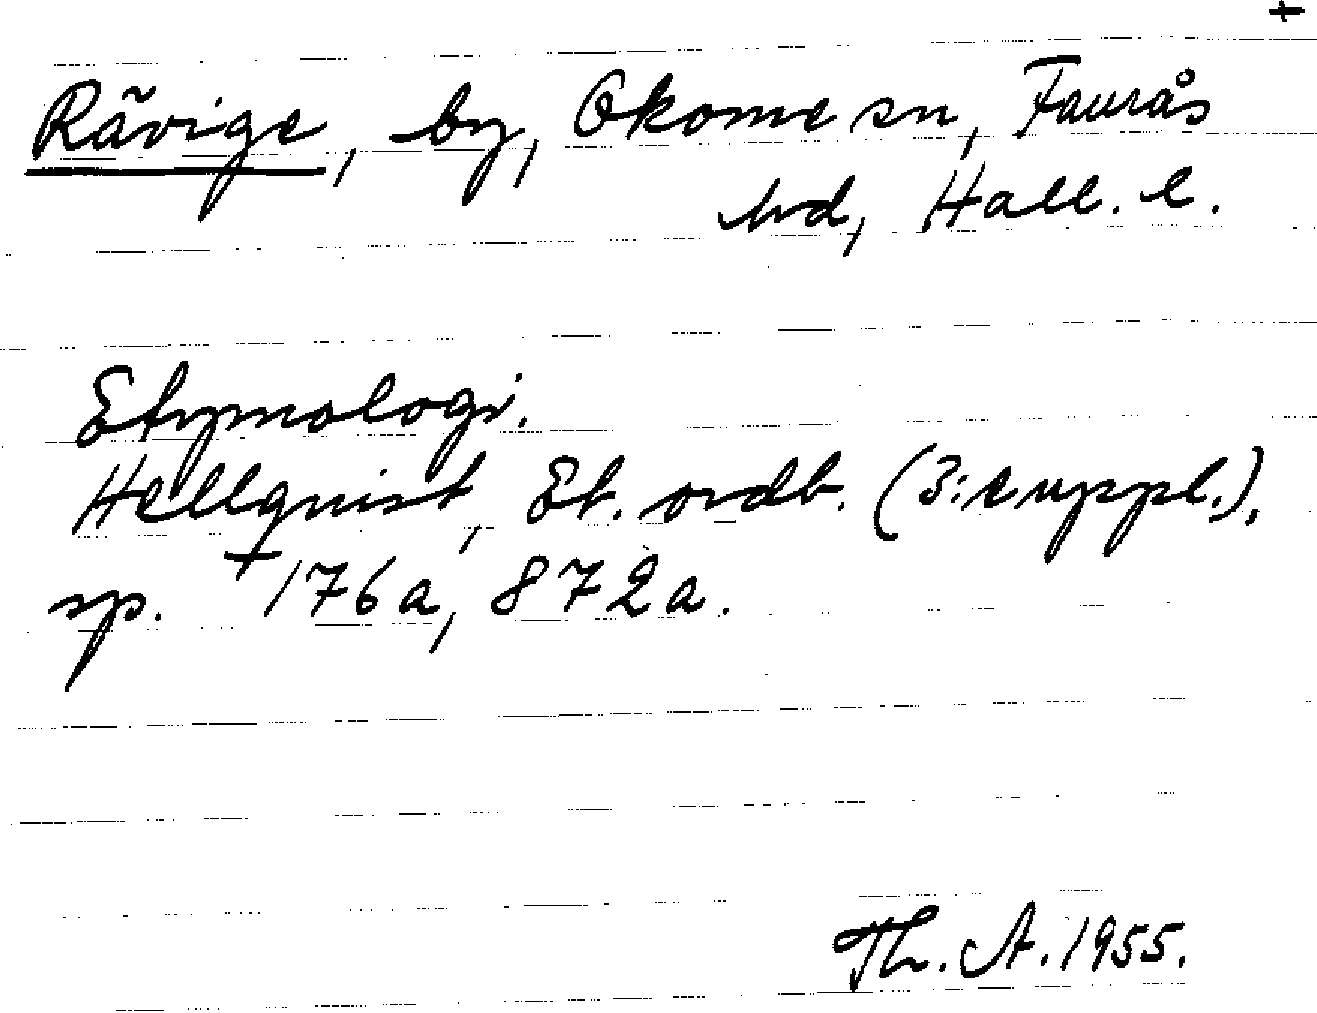 +
Rävige, by, Okome sn, Faurås
hd, Hall. l.
Etymologi.
Hellquist, Et. ordb. (3:e uppl.),
sp. +176a, 872a.
Th. A. 1955.